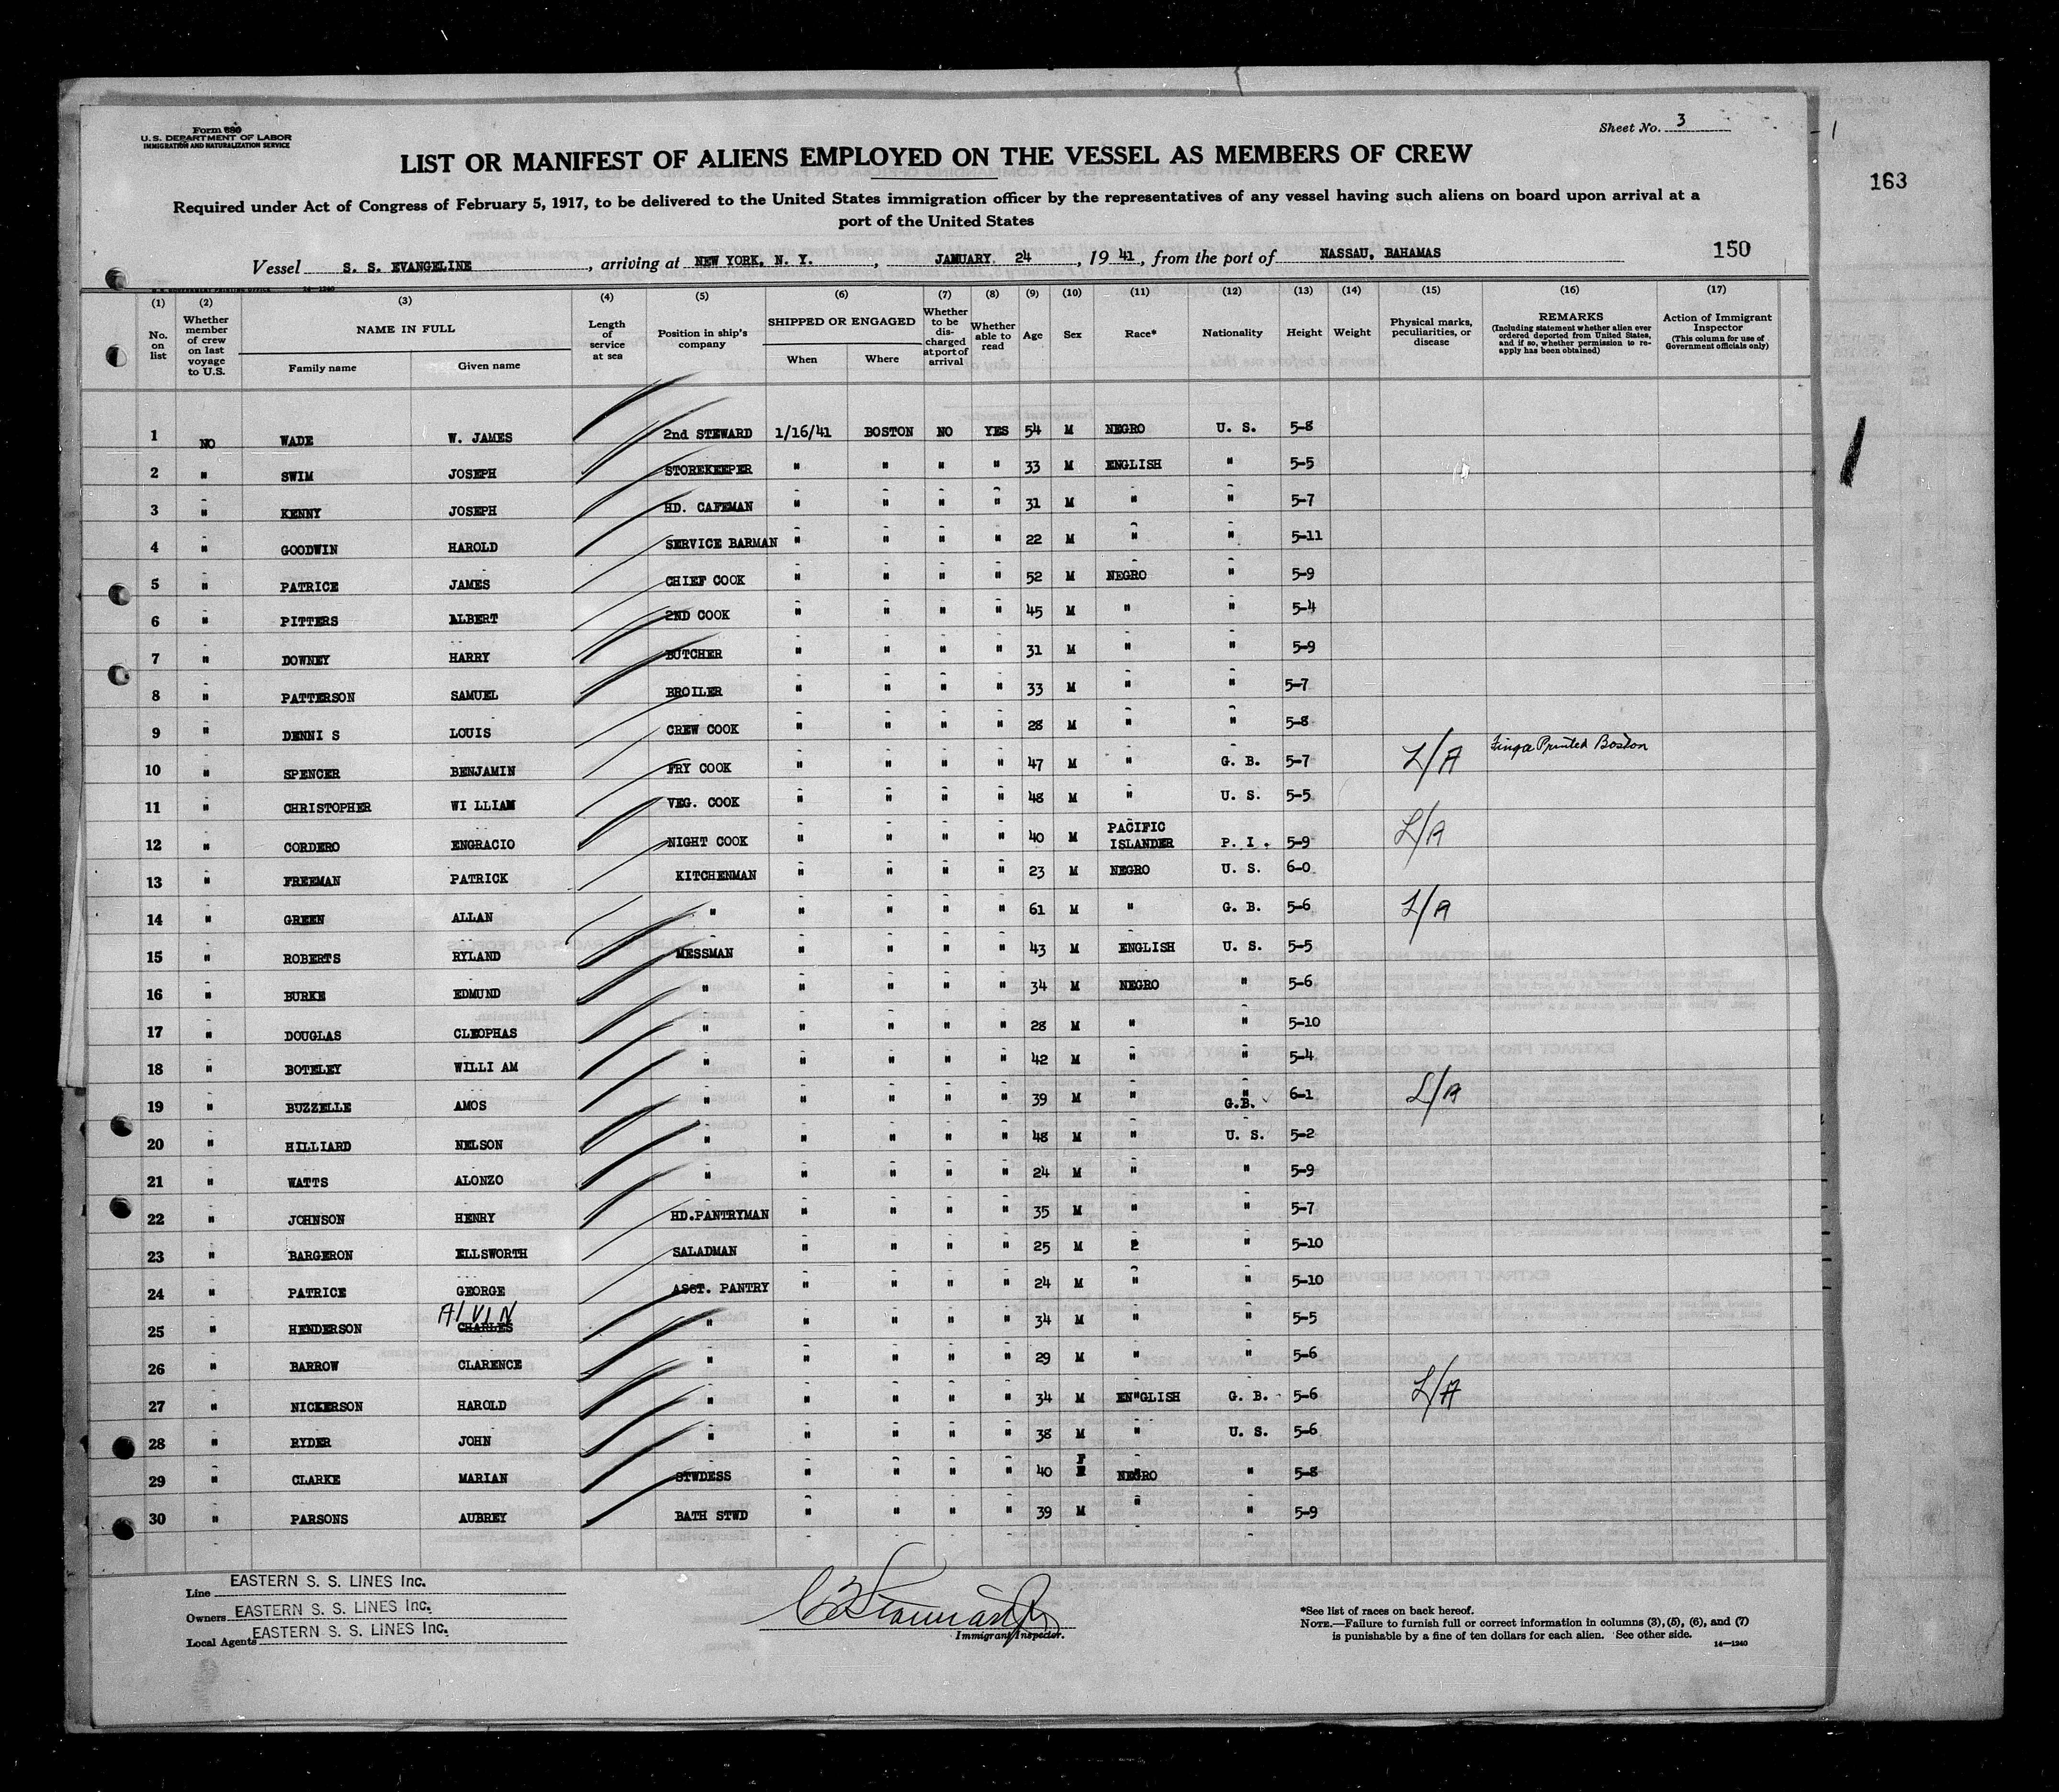 Form 680
U. S. DEPARTMENT OF LABOR
IMMIGRATION AND NATURALIZATION SERVICE
Sheet No. 3
LIST OR MANIFEST OF ALIENS EMPLOYED ON THE VESSEL AS MEMBERS OF CREW
163
Required under Act of Congress of February 5, 1917, to be delivered to the United States immigration officer by the representatives of any vessel having such aliens on board upon arrival at a
port of the United States
150
Vessel S. S. EVANGELINE, arriving at NEW YORK, N. Y., JANUARY 24, 19 41, from the port of NASSAU, BAHAMAS
(1) (2) (3) (4) (5) (6) (7) (8) (9) (10) (11) (12) (13) (14) (15) (16) (17)
No. on list
Whether member of crew on last voyage to U.S.
NAME IN FULL
Family name
Given name
Length of service at sea
Position in ship's company
SHIPPED OR ENGAGED
When
Where
Whether to be discharged at port of arrival
Whether able to read
Age
Sex
Race*
Nationality
Height
Weight
Physical marks, peculiarities, or disease
REMARKS
(Including statement whether alien ever ordered deported from United States, and if so, whether permission to reapply has been obtained)
Action of Immigrant Inspector
(This column for use of Government officials only)
1 NO WADE W. JAMES 2nd STEWARD 1/16/41 BOSTON NO YES 54 M NEGRO U. S. 5-8
2 " SWIM JOSEPH STOREKEEPER " " " " 33 M ENGLISH " 5-5
3 " KENNY JOSEPH HD. CAFEMAN " " " " 31 M " " 5-7
4 " GOODWIN HAROLD SERVICE BARMAN " " " " 22 M " " 5-11
5 " PATRICE JAMES CHIEF COOK " " " " 52 M NEGRO " 5-9
6 " PITTERS ALBERT 2ND COOK " " " " 45 M " " 5-4
7 " DOWNEY HARRY BUTCHER " " " " 31 M " " 5-9
8 " PATTERSON SAMUEL BROILER " " " " 33 M " " 5-7
9 " DENNI S LOUIS CREW COOK " " " " 28 M " " 5-8
10 " SPENCER BENJAMIN FRY COOK " " " " 47 M " G. B. 5-7 L/A Finger Printed Boston
11 " CHRISTOPHER WI LLIAM VEG. COOK " " " " 48 M " U. S. 5-5
12 " CORDERO ENGRACIO NIGHT COOK " " " " 40 M PACIFIC ISLANDER P. I. 5-9 L/A
13 " FREEMAN PATRICK KITCHENMAN " " " " 23 M NEGRO U. S. 6-0
14 " GREEN ALLAN " " " " " 61 M " G. B. 5-6 L/A
15 " ROBERTS RYLAND MESSMAN " " " " 43 M ENGLISH U. S. 5-5
16 " BURKE EDMUND " " " " " 34 M NEGRO " 5-6
17 " DOUGLAS CLEOPHAS " " " " " 28 M " " 5-10
18 " BOTELEY WILLI AM " " " " " 42 M " " 5-4
19 " BUZZELLE AMOS " " " " " 39 M " " G.B. 6-1 L/A
20 " HILLIARD NELSON " " " " " 48 M " U. S. 5-2
21 " WATTS ALONZO " " " " " 24 M " " 5-9
22 " JOHNSON HENRY HD.PANTRYMAN " " " " 35 M " " 5-7
23 " BARGERON ELLSWORTH SALADMAN " " " " 25 M 2 " 5-10
24 " PATRICE GEORGE ASST. PANTRY " " " " 24 M " " 5-10
25 " HENDERSON ALVIN CHARLES " " " " " 34 M " " 5-5
26 " BARROW CLARENCE " " " " " 29 M " " 5-6
27 " NICKERSON HAROLD " " " " " 34 M EN"GLISH G. B. 5-6 L/A
28 " RYDER JOHN " " " " " 38 M " U. S. 5-6
29 " CLARKE MARIAN STWDESS " " " " 40 F NEGRO " 5-8
30 " PARSONS AUBREY BATH STWD " " " " 39 M " " 5-9
Line EASTERN S. S. LINES Inc.
Owners EASTERN S. S. LINES Inc.
Local Agents EASTERN S. S. LINES Inc.
Immigrant Inspector.
*See list of races on back hereof.
NOTE.—Failure to furnish full or correct information in columns (3), (5), (6), and (7)
is punishable by a fine of ten dollars for each alien. See other side.
14—1240